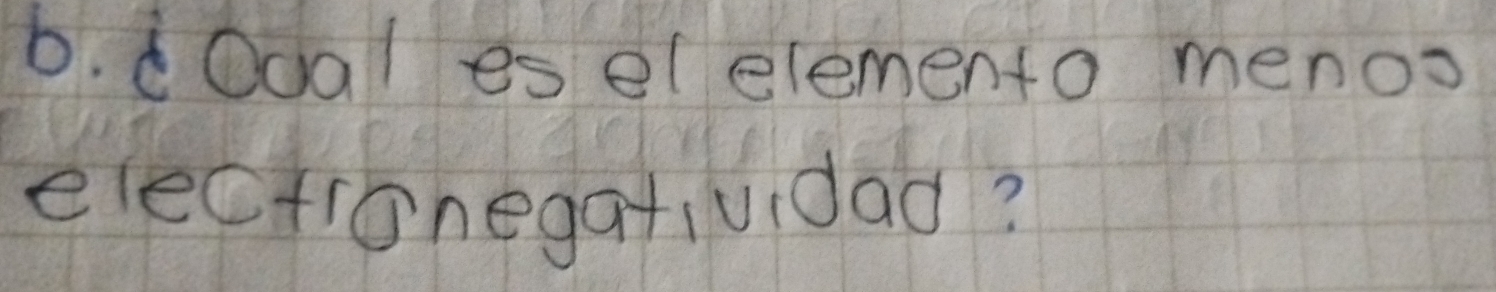 b. ¿Cual es el elemento menos
electronegatividad?